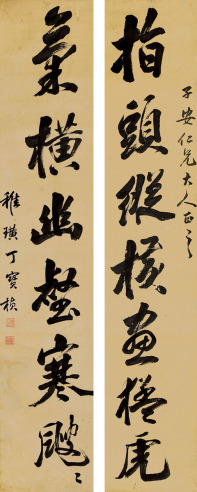 子安仁兄大人正之
指頭縱畫猛虎
氣橫幽壑寒颼颼
稚璜丁寶楨